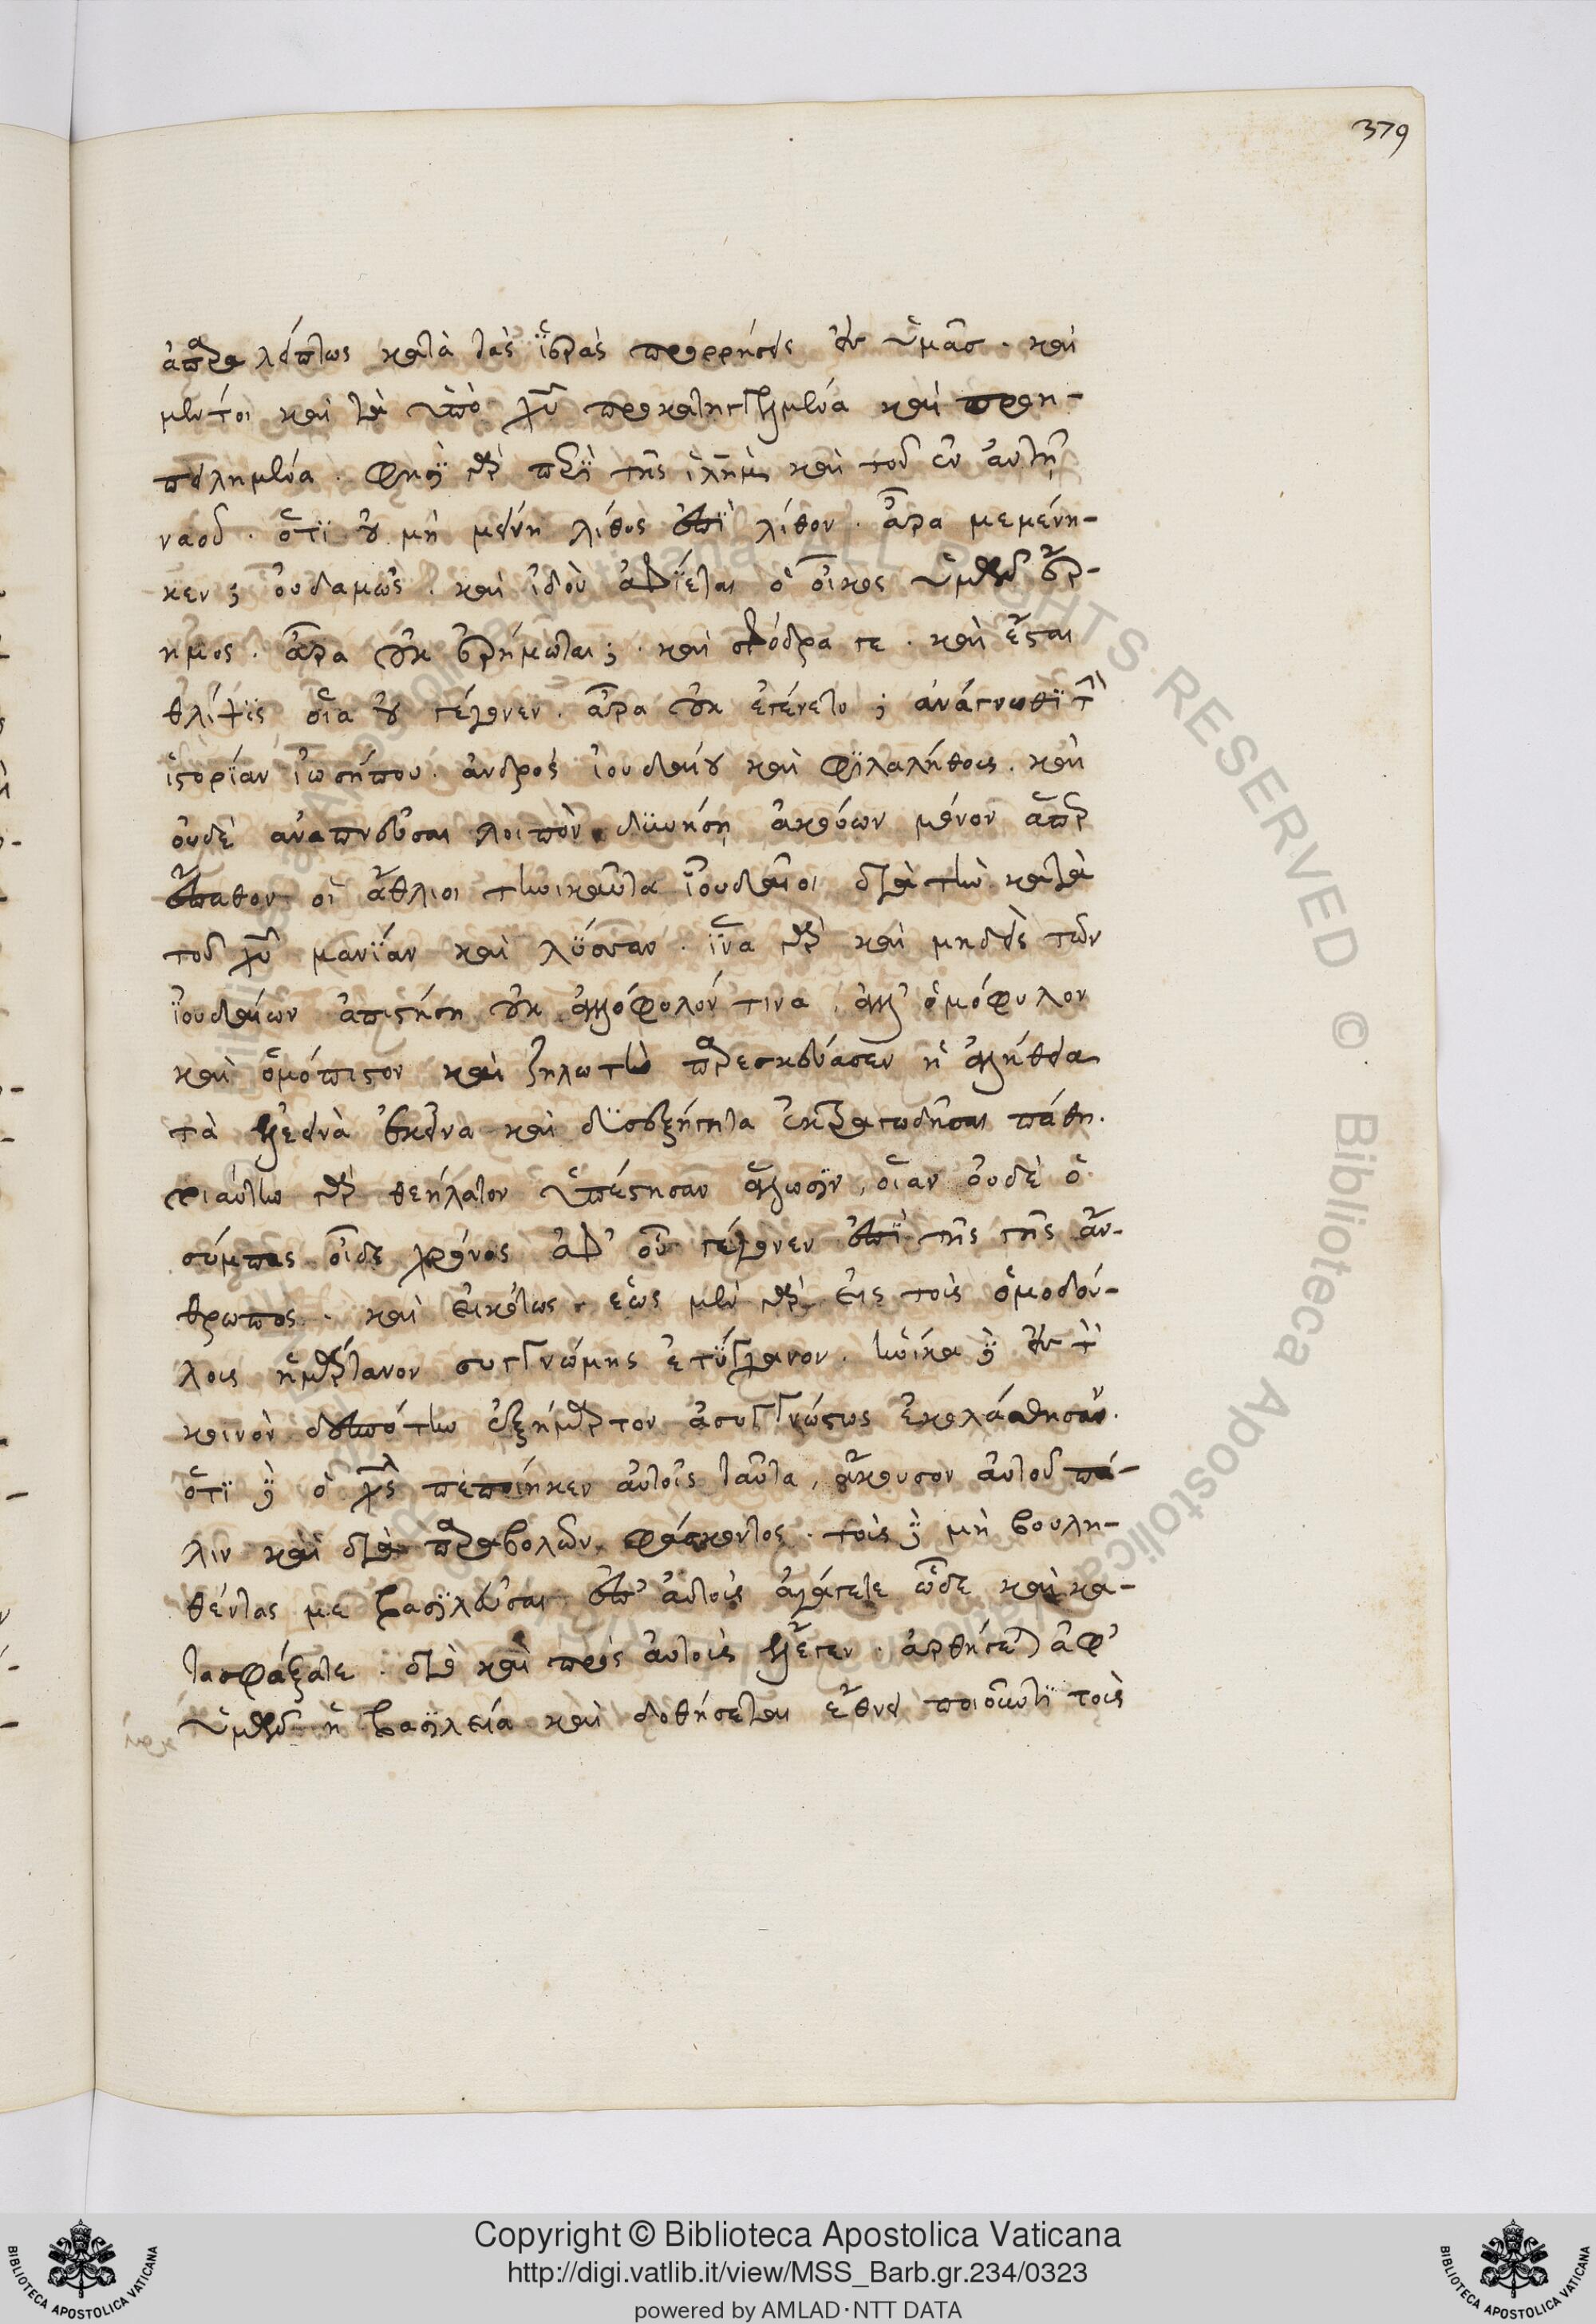 379
ἀπαραλείπτως κατὰ τὰς ἱερὰς προρρήσεις εἰς ὑμᾶς. καὶ
μέντοι καὶ τὰ ὑπὸ χυ προκατηγγελμένα καὶ προη-
πειλημένα. φησὶ γὰρ περὶ τῆς ἱλημ καὶ τοῦ ἐν αὐτῇ
ναοῦ. ὅτι οὐ μὴ μείνῃ λίθος ἐπὶ λίθον. ἆρα μεμένη-
κεν; οὐδαμῶς. καὶ ἰδοὺ ἀφίεται ὁ οἶκος ὑμῶν ἔρ-
ημος. ἆρα οὐκ ἐρήμωται; καὶ σφόδρα γε. καὶ ἔσται
θλίψις οἵα οὐ γέγονεν. ἆρα οὐκ ἐγένετο; ἀνάγνωθι τὴν
ἱστορίαν ἰωσήπου. ἀνδρὸς ἰουδαίου καὶ φιλαλήθους. καὶ
οὐδὲ ἀναπνεῦσαι λοιπὸν δυνήσῃ ἀκούων μόνον ἅπερ
ἔπαθον οἱ ἄθλιοι τηνικαῦτα ἰουδαῖοι διὰ τὴν κατὰ
τοῦ χυ μανίαν καὶ λύσσαν. ἵνα γὰρ καὶ μηδεὶς τῶν
ἰουδαίων ἀπιστήσῃ οὐκ ἀλλόφυλόν τινα, ἀλλ' ὁμόφυλον
καὶ ὁμόπιστον καὶ ζηλωτὴν παρεσκεύασεν ἡ ἀλήθεια
τὰ ἐλεεινὰ ἐκεῖνα καὶ δυσεξήγητα ἐκτραγωδῆσαι πάθη.
τοιαύτην γὰρ θεήλατον ὑπέστησαν ἅλωσιν, οἵαν οὐδὲ ὁ
σύμπας οἶδε χρόνος ἀφ' οὗ γέγονεν ἐπὶ τῆς γῆς ἄν-
θρωπος. καὶ εἰκότως. ἕως μὲν γὰρ εἰς τοὺς ὁμοδού-
λους ἡμάρτανον συγγνώμης ἐτύγχανον. ἡνίκα δὲ εἰς τὸν
κοινὸν δεσπότην ἐξήμαρτον ἀσυγγνώστως ἐκολάσθησαν.
ὅτι δὲ ὁ χς πεποίηκεν αὐτοῖς ταῦτα, ἄκουσον αὐτοῦ πά-
λιν καὶ διὰ παραβολῶν φάσκοντος. τοὺς δὲ μὴ βουλη-
θέντας με βασιλεῦσαι ἐπ' αὐτοὺς ἀγάγετε ὧδε καὶ κα-
τασφάξατε. διὸ καὶ πρὸς αὐτοὺς ἔλεγεν. ἀρθήσεται ἀφ'
ὑμῶν ἡ βασιλεία καὶ δοθήσεται ἔθνει ποιοῦντι τοὺς
Copyright © Biblioteca Apostolica Vaticana
http://digi.vatlib.it/view/MSS_Barb.gr.234/0323
powered by AMLAD·NTT DATA